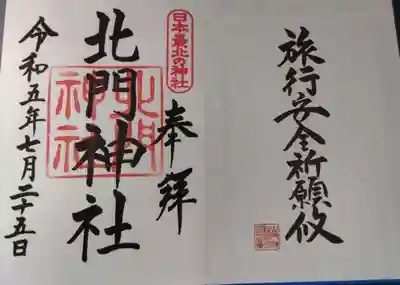 旅行安全祈願攸
奉拝
日本最北の神社
北門神社
北門神社
令和五年七月二十五日